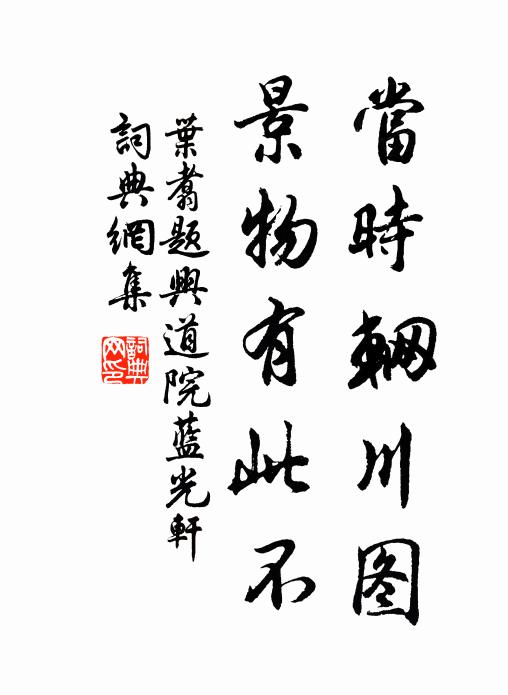 當時輞川图
景物有此不
葉翥題興道院藍光軒
詞典網集
詞典网印